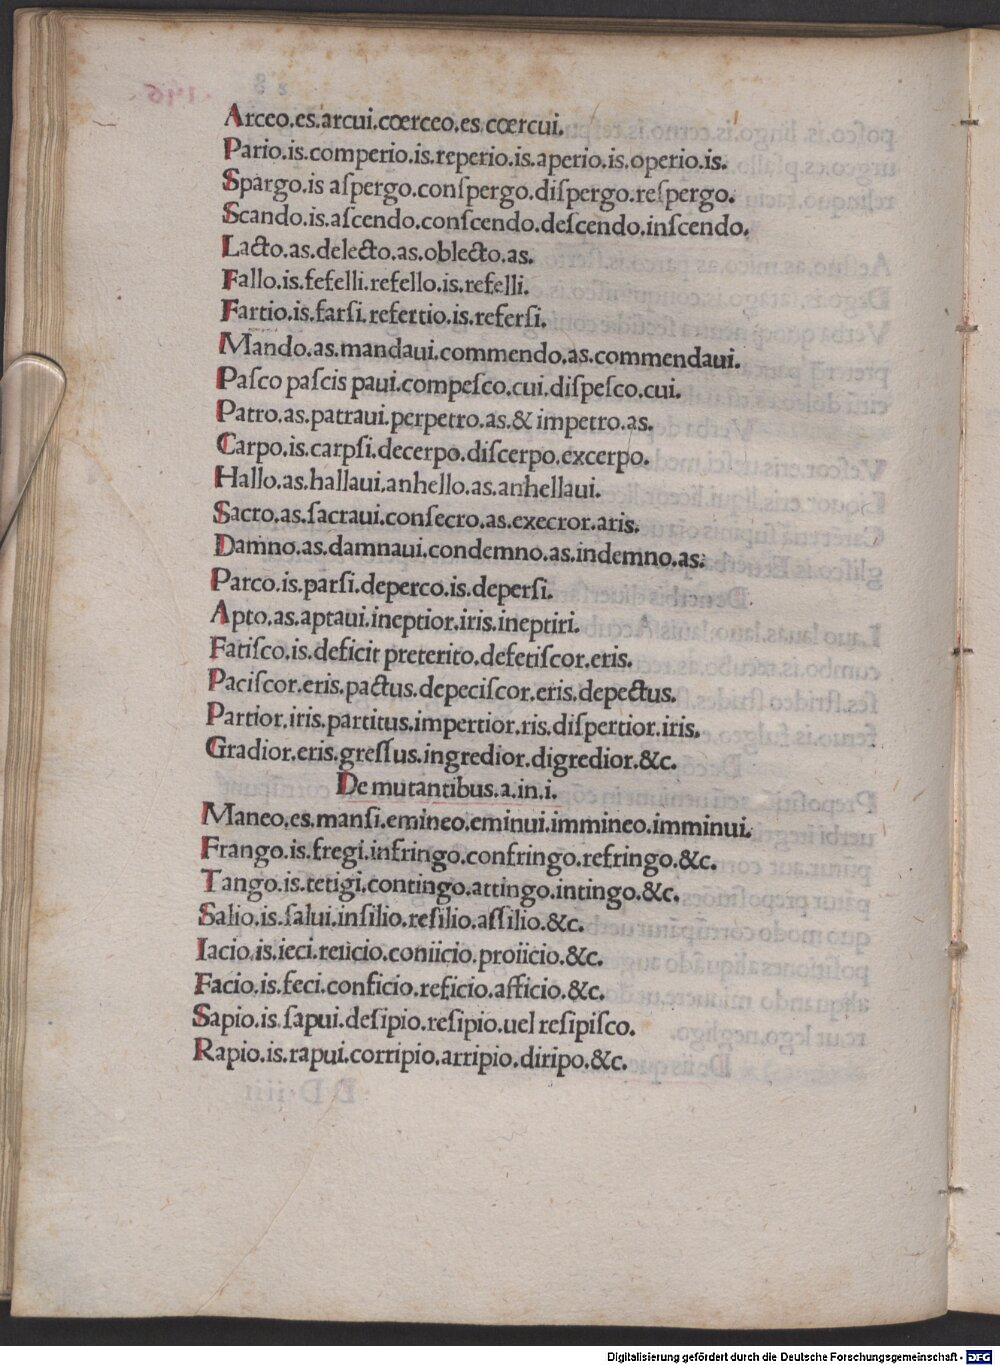 Arceo.es.arcui.cœrceo.es cœrcui.
Pario.is.comperio.is.reperio.is.aperio.is.operio.is.
Spargo.is aſpergo.conſpergo.diſpergo.reſpergo.
Scando.is.aſcendo.conſcendo.deſcendo.inſcendo.
Lacto.as.delecto.as.oblecto.as.
Fallo.is.fefelli.refello.is.refelli.
Fartio.is.farſi.refertio.is.referſi.
Mando.as.mandaui.commendo.as.commendaui.
Paſco paſcis paui.compeſco.cui.diſpeſco.cui.
Patro.as.patraui.perpetro.as.& impetro.as.
Carpo.is.carpſi.decerpo.diſcerpo.excerpo.
Hallo.as.hallaui.anhello.as.anhellaui.
Sacro.as.ſacraui.conſecro.as.execror.aris.
Damno.as.damnaui.condemno.as.indemno.as.
Parco.is.parſi.deperco.is.deperſi.
Apto.as.aptaui.ineptior.iris.ineptiri.
Fatiſco.is.deficit preterito.defetiſcor.eris.
Paciſcor.eris.pactus.depeciſcor.eris.depectus.
Partior.iris.partitus.impertior.ris.diſpertior.iris.
Gradior.eris.greſſus.ingredior.digredior.&c.
De mutantibus.a.in.i.
Maneo.es.manſi.emineo.eminui.immineo.imminui.
Frango.is.fregi.infringo.confringo.refringo.&c.
Tango.is.tetigi.contingo.attingo.intingo.&c.
Salio.is.ſalui.inſilio.reſilio.aſſilio.&c.
Iacio.is.ieci.reiicio.coniicio.proiicio.&c.
Facio.is.feci.conficio.reficio.afficio.&c.
Sapio.is.ſapui.deſipio.reſipio.uel reſipiſco.
Rapio.is.rapui.corripio.arripio.diripo.&c.
Digitalisierung gefördert durch die Deutsche Forschungsgemeinschaft - DFG